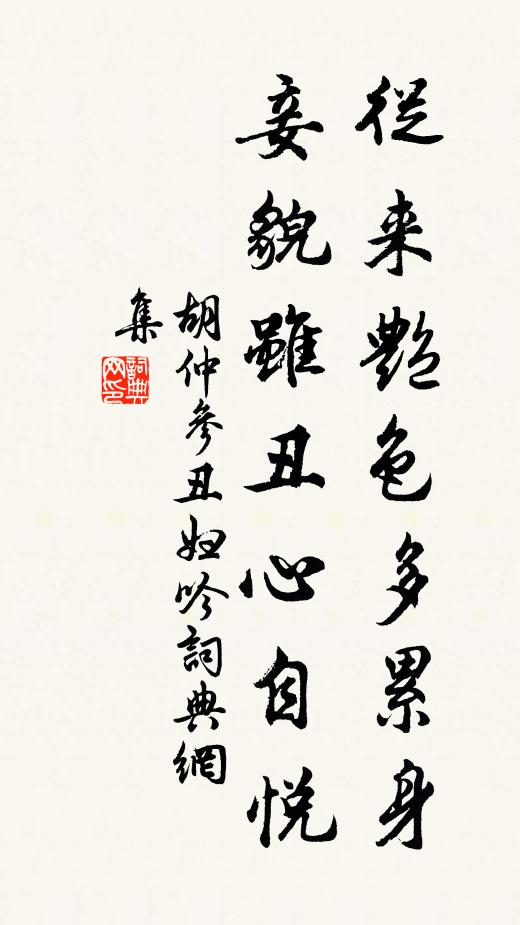 從来艷色多累身
妾貌雖丑心自悅
胡仲參丑妇吟詞典網
集
詞典
网印